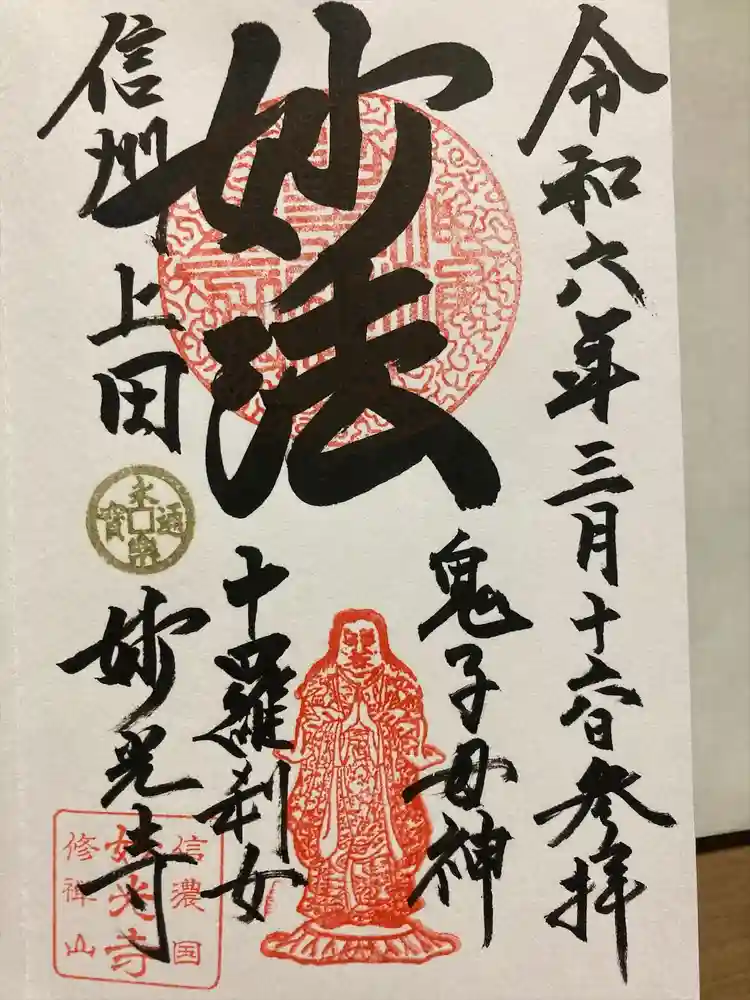 令和六年三月十六日参拝
妙法
鬼子母神
十羅刹女
信州上田
永通
樂寶
妙光寺
信濃国
妙光寺
修禅山